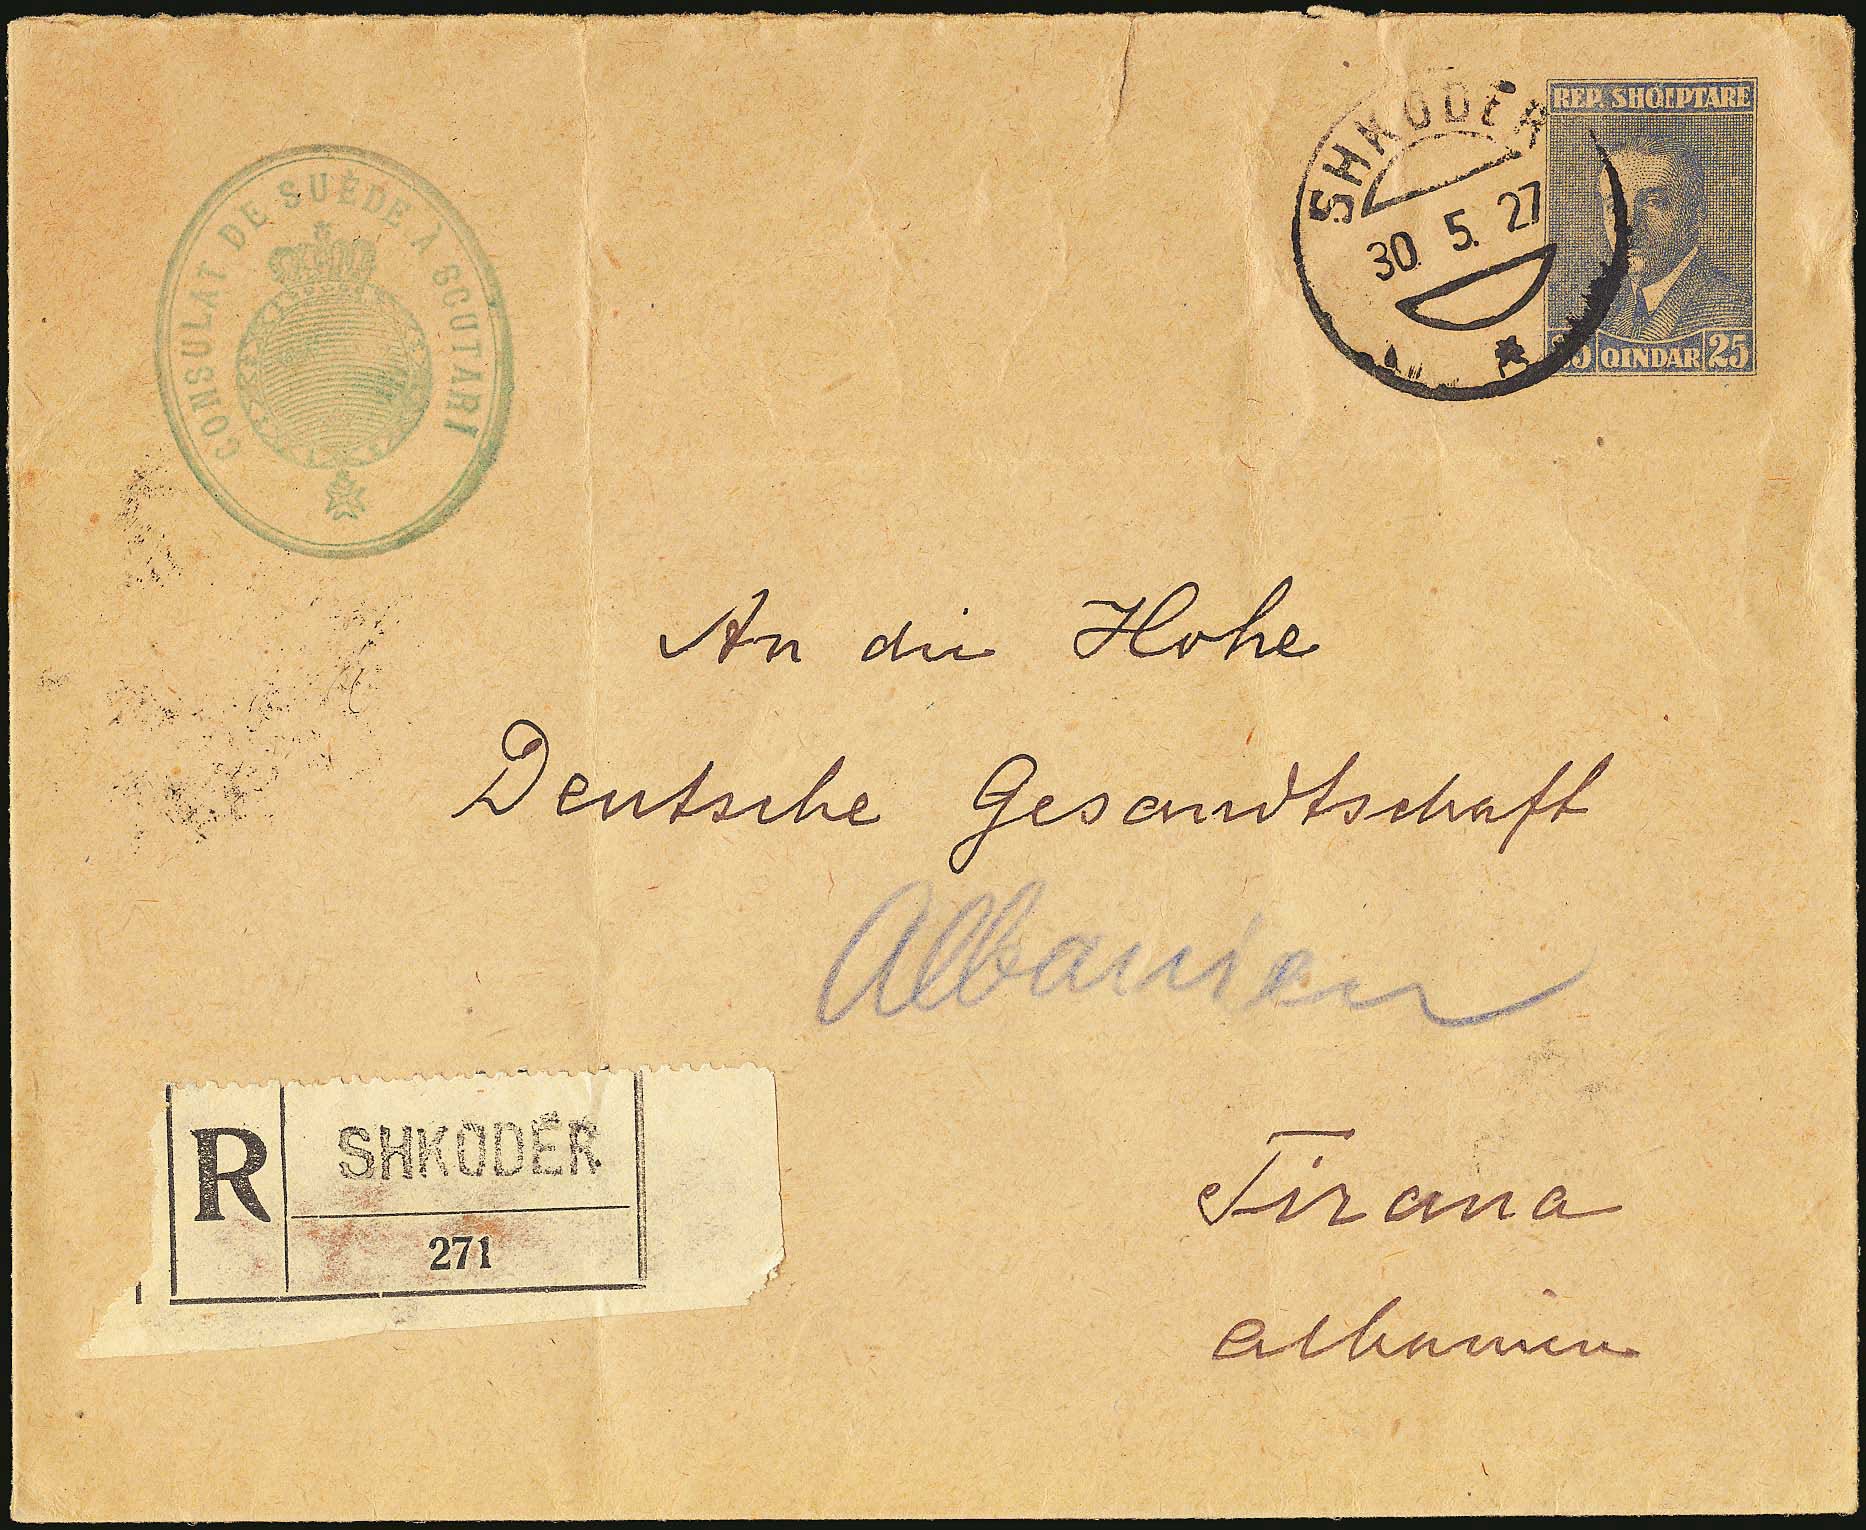 CONSULAT DE SUÈDE À SCUTARI
SHKODËR
30. 5. 27
REP. SHQIPTARE
25 QINDAR 25
An die Hohe
Deutsche Gesandtschaft
Albanien
Tirana
Albanien
R SHKODËR
271